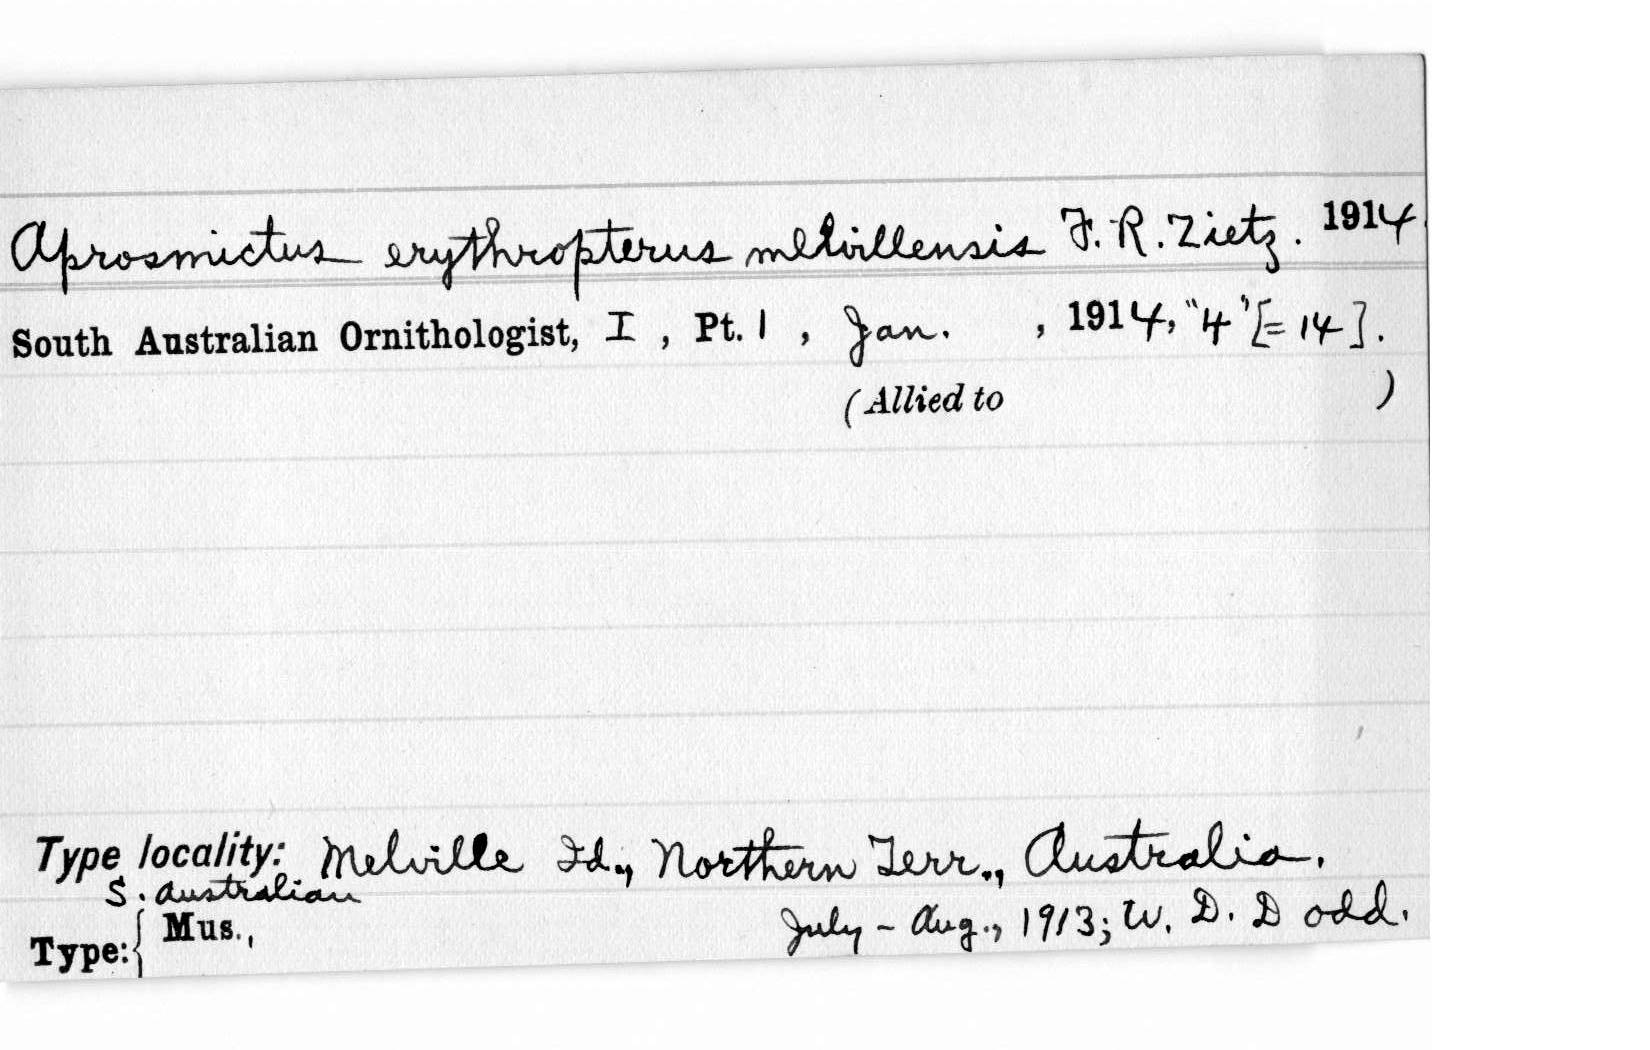 Aprosmictus erythropterus melvillensis F. R. Zietz. 1914.
South Australian Ornithologist, I, Pt. 1, Jan. , 1914, "4" [= 14].
(Allied to )
Type locality: Melville Id., Northern Terr., Australia.
S. Australian
Type: { Mus., July - Aug., 1913; W. D. Dodd.